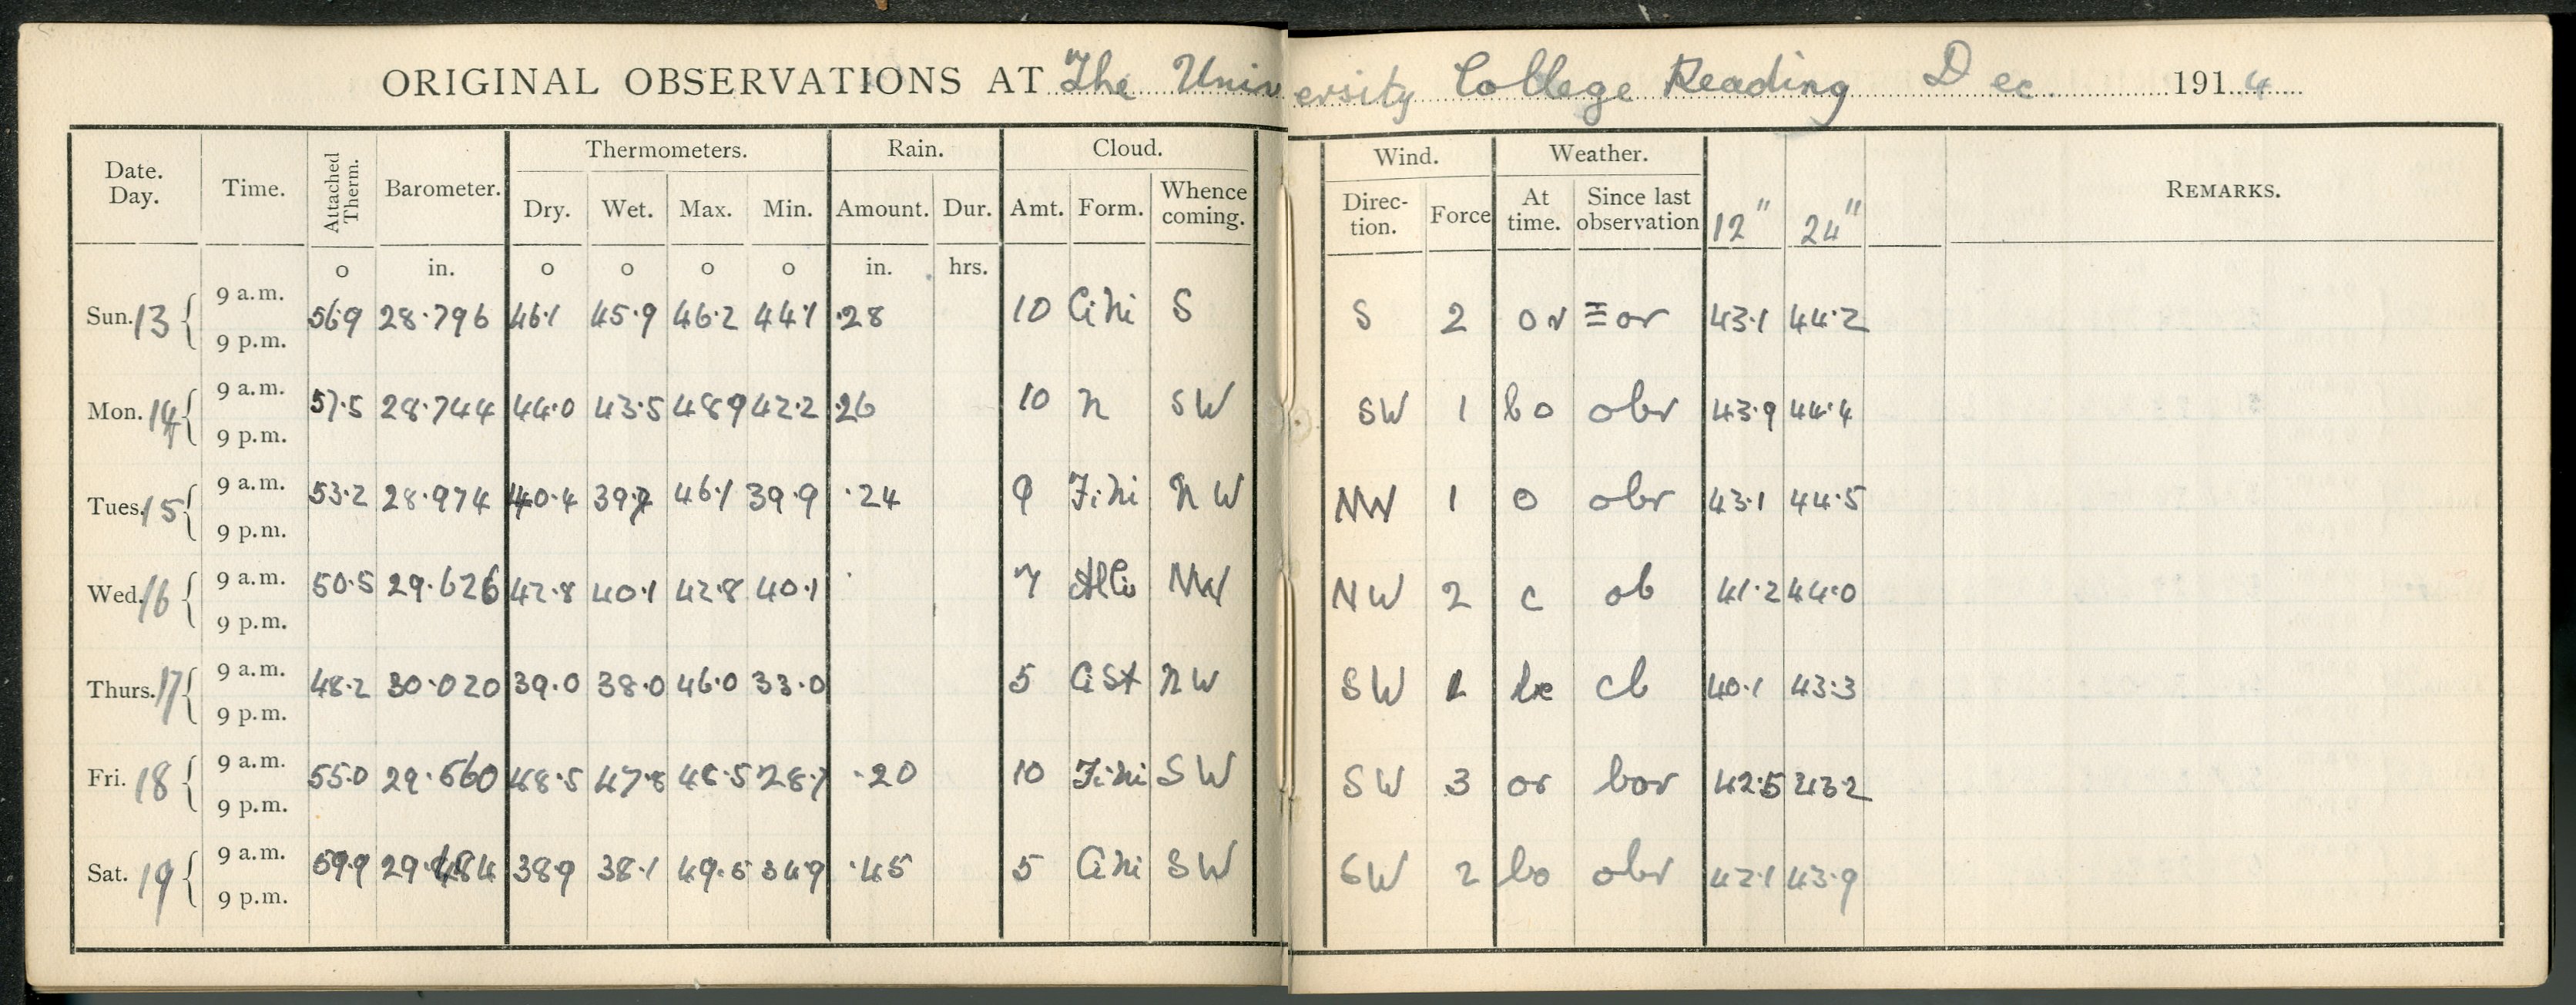 ORIGINAL OBSERVATIONS AT The University College Reading Dec. 1914
Thermometers. Rain. Cloud. Wind. Weather.
Date. Day. Time. Attached Therm. Barometer. Dry. Wet. Max. Min. Amount. Dur. Amt. Form. Whence coming. Direc-tion. Force At time. Since last observation 12" 24" REMARKS.
o in. o o o o in. hrs.
9 a.m.
Sun. 13 56.9 28.796 46.1 45.9 46.2 44.1 .28 10 Ci Ni S S 2 or ≡or 43.1 44.2
9 p.m.
9 a.m.
Mon. 14 57.5 28.744 44.0 43.5 48.9 42.2 .26 10 N SW SW 1 bo obr 43.9 44.4
9 p.m.
9 a.m.
Tues. 15 53.2 28.974 40.4 39.7 46.1 39.9 .24 9 Fi.Ni NW NW 1 o obr 43.1 44.5
9 p.m.
9 a.m.
Wed. 16 50.5 29.626 42.8 40.1 42.8 40.1 7 NW NW 2 c ob 41.2 44.0
9 p.m.
9 a.m.
Thurs. 17 48.2 30.020 39.0 38.0 46.0 33.0 5 Ci St NW SW 1 bc cb 40.1 43.3
9 p.m.
9 a.m.
Fri. 18 55.0 29.560 48.5 47.8 48.5 28.7 .20 10 Fi.Ni SW SW 3 or bor 42.5 43.2
9 p.m.
9 a.m.
Sat. 19 59.9 29.484 38.9 38.1 49.5 34.9 .45 5 Ci Ni SW SW 2 bo obr 42.1 43.9
9 p.m.